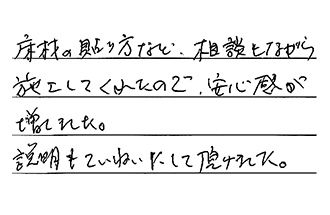 床材の貼り方など、相談しながら
施工してくれたので、安心感が
増しました。
説明もていねいにして頂けました。